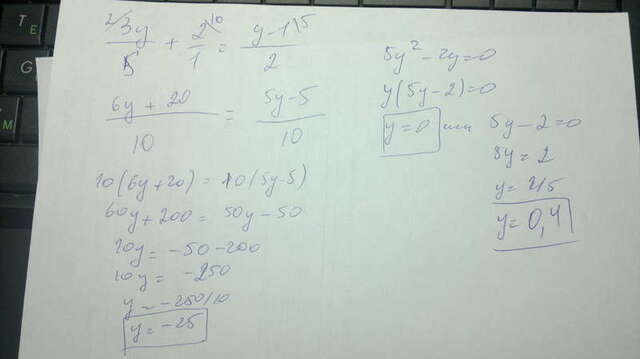 2/ 3y/5 + 2\10/1 = y-1\5/2
6y + 20/10 = 5y-5/10
10(6y+20) = 10(5y-5)
60y+200 = 50y-50
10y = -50-200
10y = -250
y = -250/10
y = -25
5y²-2y=0
y(5y-2)=0
y=0 или 5y-2=0
5y = 2
y = 2/5
y = 0,4
T
E
G
M